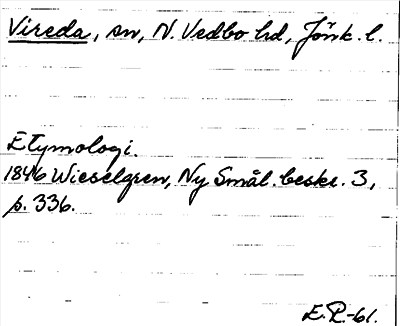 Vireda, sn, N. Vedbo hd, Jönk. l.
Etymologi.
1846 Wieselgren, Ny Smål. beskr. 3,
p. 336.
E.R.-61.